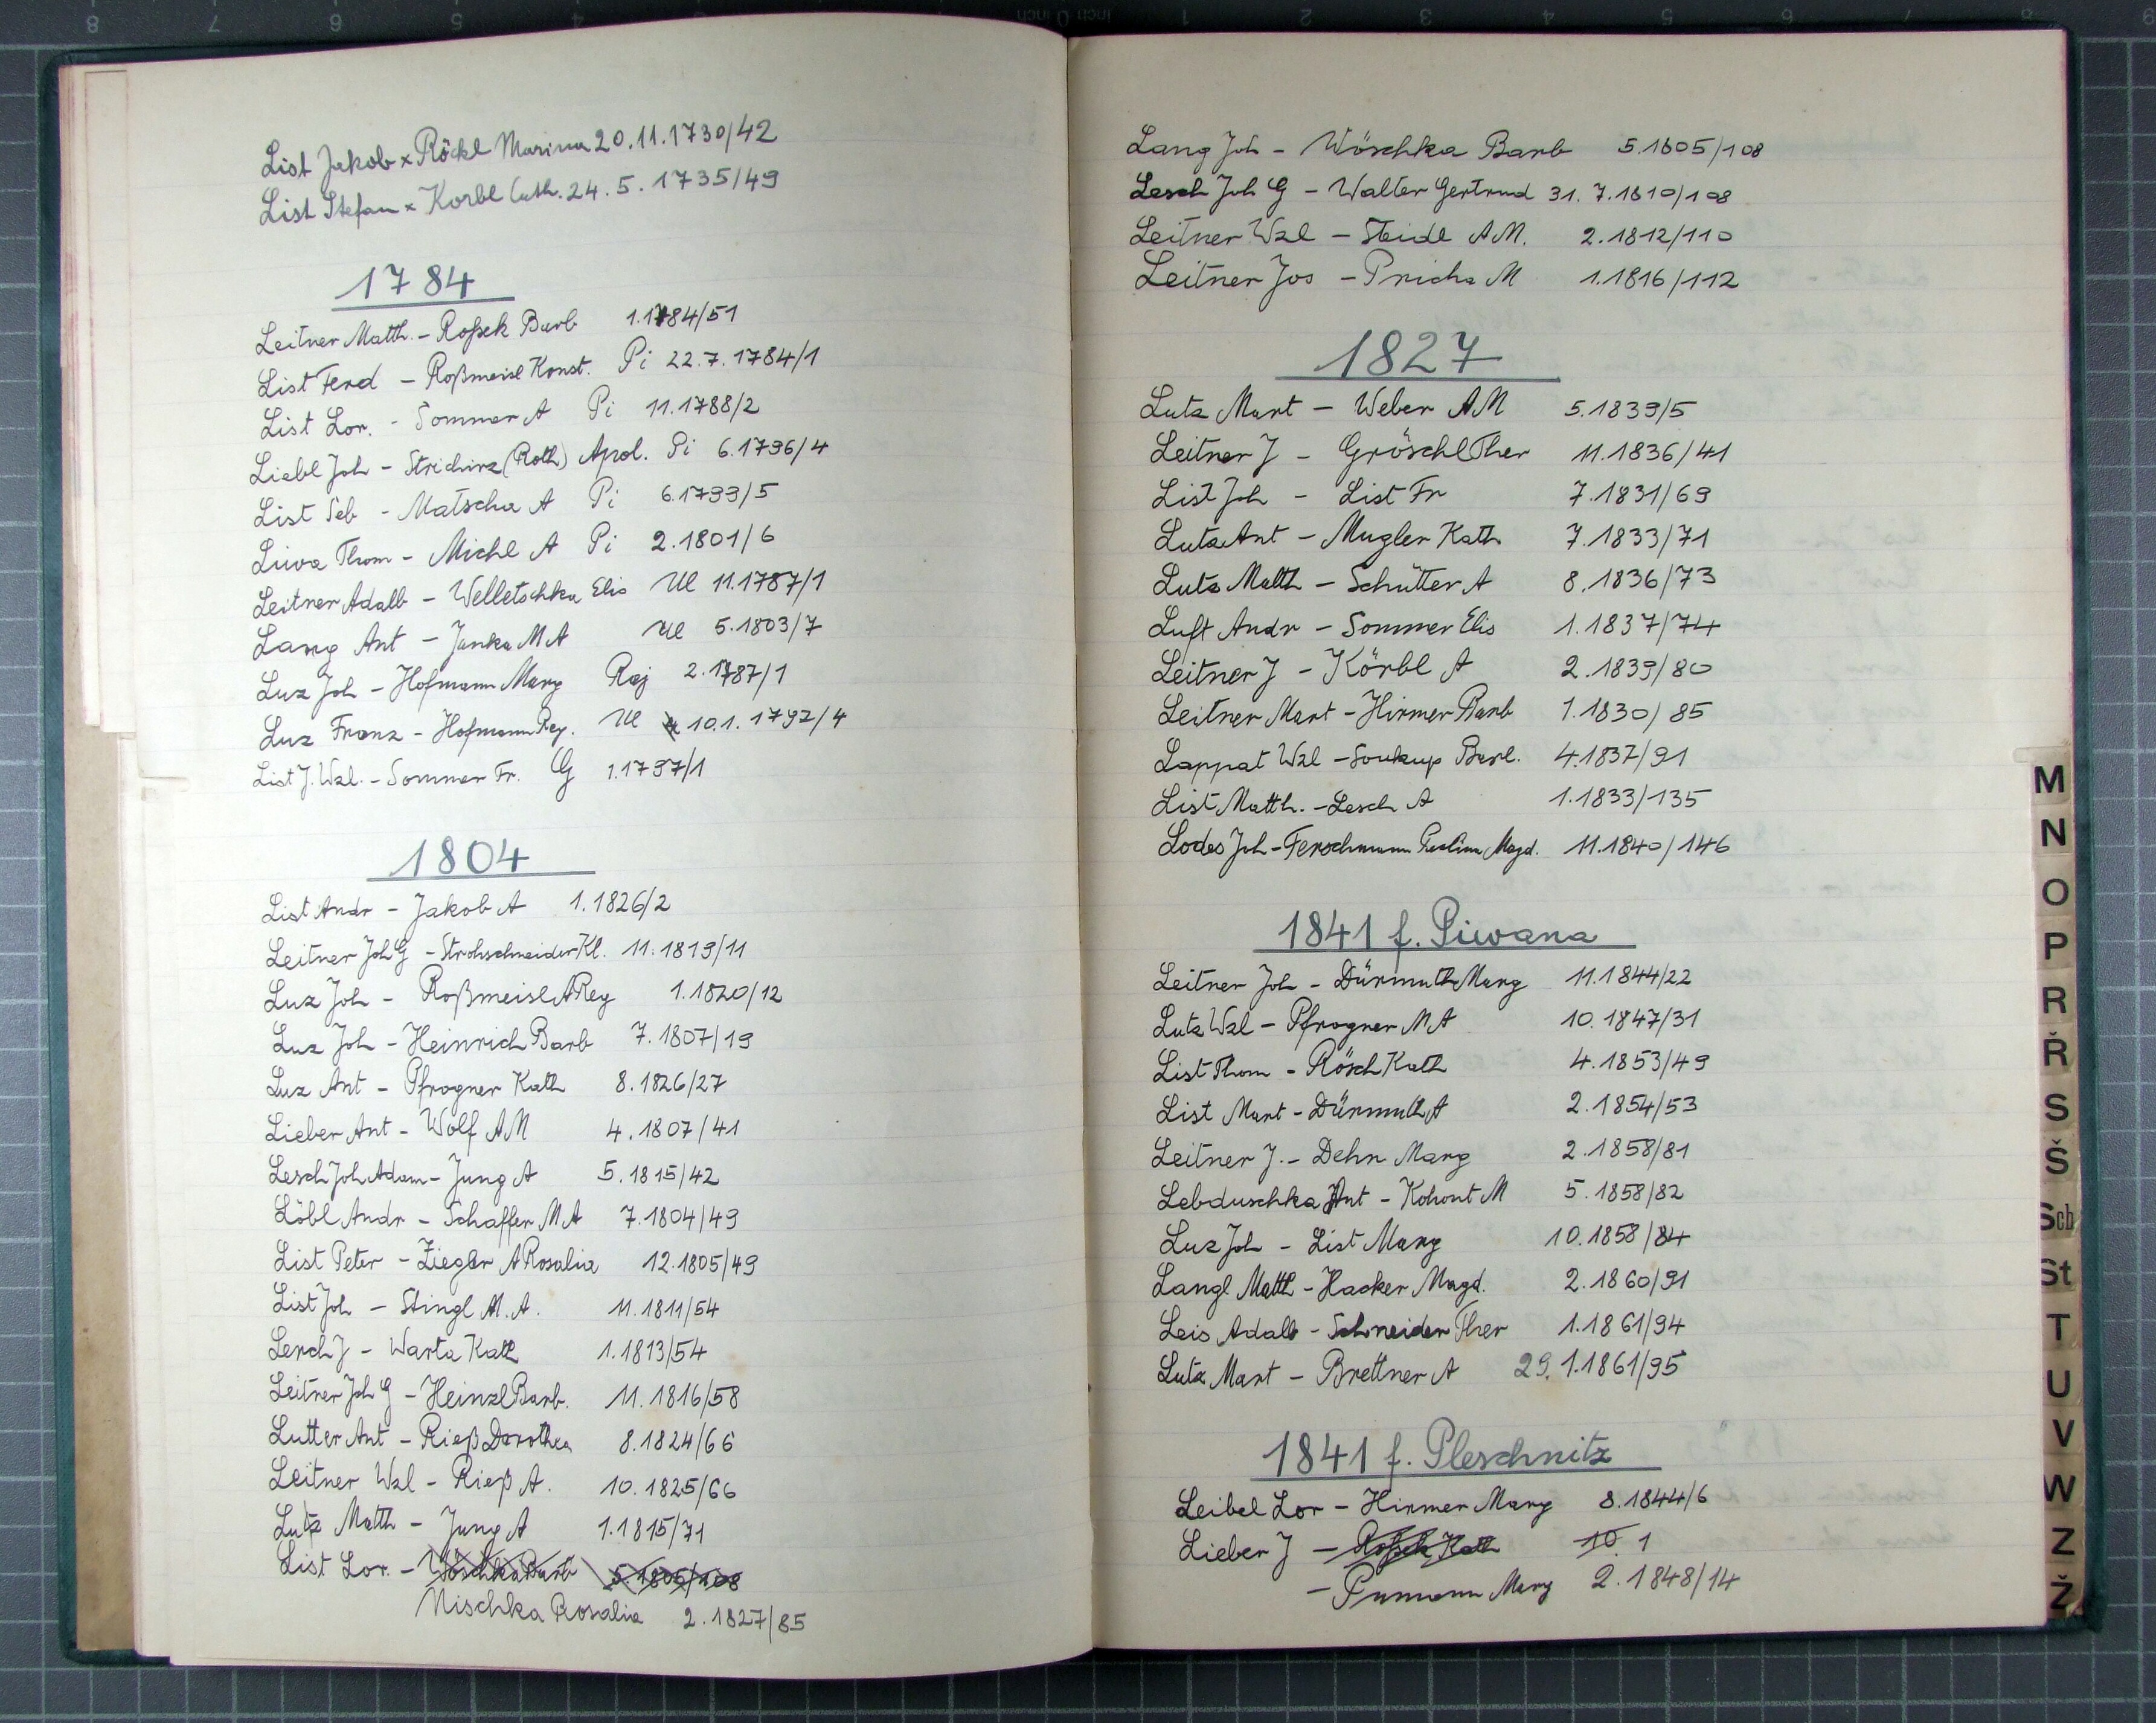 List Jakob x Röckl Marina 20.11.1730/42
List Stefan x Korbl Cath. 24.5.1735/49
1784
Leitner Matth. - Roßek Barb 1.1784/51
List Ferd - Roßmeisl Konst. Pi 22.7.1784/1
List Lor. - Sommer A Pi 11.1788/2
Liebl Joh - Strichirz (Roth) Apol. Pi 6.1796/4
List Seb - Matscha A Pi 6.1799/5
Liwa Thom - Michl A Pi 2.1801/6
Leitner Adalb - Welletschka Elis Ul 11.1787/1
Lang Ant - Janka M A Ul 5.1803/7
Luz Joh - Hofmann Marg Raj 2.1787/1
Luz Franz - Hofmann Reg. Ul 10.1.1792/4
List J. Wzl. - Sommer Fr. G 1.1797/1
1804
List Andr - Jakob A 1.1826/2
Leitner Joh G - Strohschneider Kl. 11.1819/11
Luz Joh - Roßmeisl A Reg 1.1820/12
Luz Joh - Heinrich Barb 7.1807/19
Luz Ant - Pfrogner Kath 8.1826/27
Lieber Ant - Wolf A M 4.1807/41
Lesch Joh Adam - Jung A 5.1815/42
Löbl Andr - Schaffer M A 7.1804/49
List Peter - Ziegler A Rosalia 12.1805/49
List Joh - Stingl M. A. 11.1811/54
Lerch J - Warta Kath 1.1813/54
Leitner Joh G - Heinzl Barb. 11.1816/58
Lutter Ant - Rieß Dorothea 8.1824/66
Leitner Wzl - Rieß A. 10.1825/66
Lutz Matth - Jung A 1.1815/71
List Lor. - Wöschka Barb 5.1805/108
Nischka Rosalia 2.1827/85
Lang Joh - Wöschka Barb 5.1805/108
Lesch Joh G - Walter Gertrud 31.7.1810/108
Leitner Wzl - Steidl A M. 2.1812/110
Leitner Jos - Pricha M 1.1816/112
1827
Lutz Mart - Weber A M 5.1839/5
Leitner J - Gröschl Ther 11.1836/41
List Joh - List Fr 7.1831/69
Lutz Ant - Mugler Kath 7.1833/71
Lutz Matth - Schütter A 8.1836/73
Luft Andr - Sommer Elis 1.1837/74
Leitner J - Körbl A 2.1839/80
Leitner Mart - Hirmer Barb 1.1830/85
Lappat Wzl - Soukup Barb. 4.1837/91
List Matth. - Lesch A 1.1833/135
Lodes Joh - Ferschmann Paulina Magd. 11.1840/146
1841 f. Piwana
Leitner Joh - Dürmuth Marg 11.1844/22
Lutz Wzl - Pfrogner M A 10.1847/31
List Thom - Rösch Kath 4.1853/49
List Mart - Dürmuth A 2.1854/53
Leitner J. - Dehn Marg 2.1858/81
Lebduschka Ant - Kohout M 5.1858/82
Luz Joh - List Marg 10.1858/84
Langl Matth - Hacker Magd. 2.1860/91
Leis Adalb - Schneider Ther 1.1861/94
Lutz Mart - Brettner A 29.1.1861/95
1841 f. Pleschnitz
Leibel Lor - Hirmer Marg 8.1844/6
Lieber J - Roßek Kath 10. 1
- Pumann Marg 2.1848/14
M
N
O
P
R
Ř
S
Š
Sch
St
T
U
V
W
Z
Ž